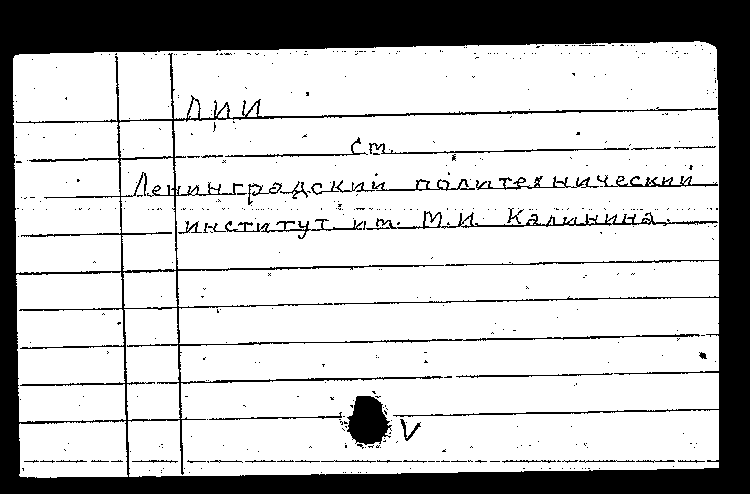 ЛПИ
ст.
Ленинградский политехнический
институт им. М.И. Калинина.
V